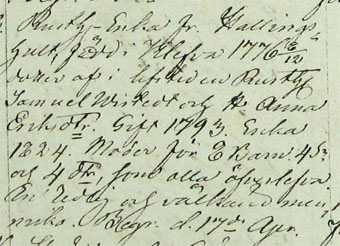 Rustg. Enka fr. Hallings-
hult, född i Klefva 1776 6/12
dotter af i lifstiden Rusttg
Samuel Wistedt och H. Anna
Eriksdtr. Gift 1793. Enka
1824. Moder för 8 Barn. 4 S:
och 4 dtr. som alla öfverlefva.
En redlig och välkänd men-
niska. Begr. d. 17de Apr.